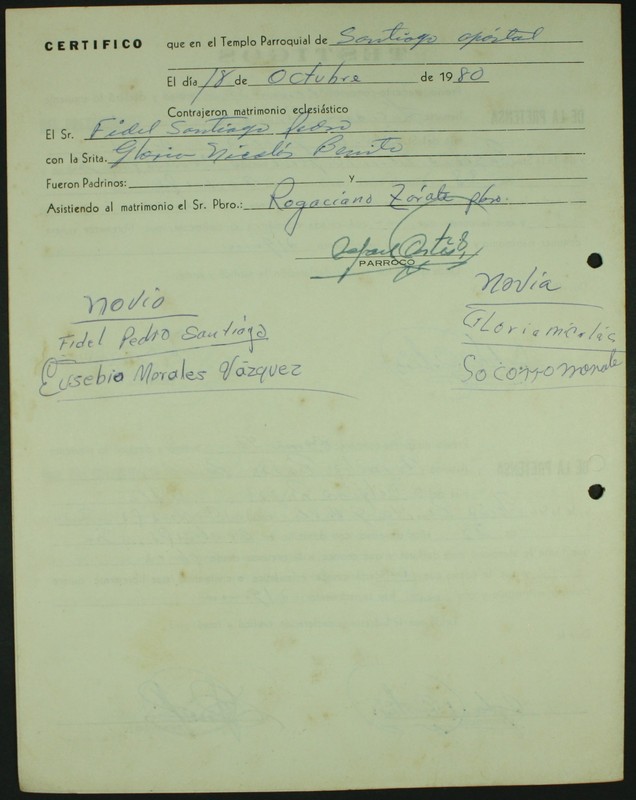 CERTIFICO que en el Templo Parroquial de Santiago apóstal
El día 18 de Octubre de 1980
Contrajeron matrimonio eclesiástico
El Sr. Fidel Santiago Pedro
con la Srita. Gloria Nicolás Benito
Fueron Padrinos: y
Asistiendo al matrimonio el Sr. Pbro.: Rogaciano Zárate pbro.
PARROCO
novio
novia
Fidel Pedro Santiago
Gloria nicolás
Eusebio Morales Vázquez
Socorro morale